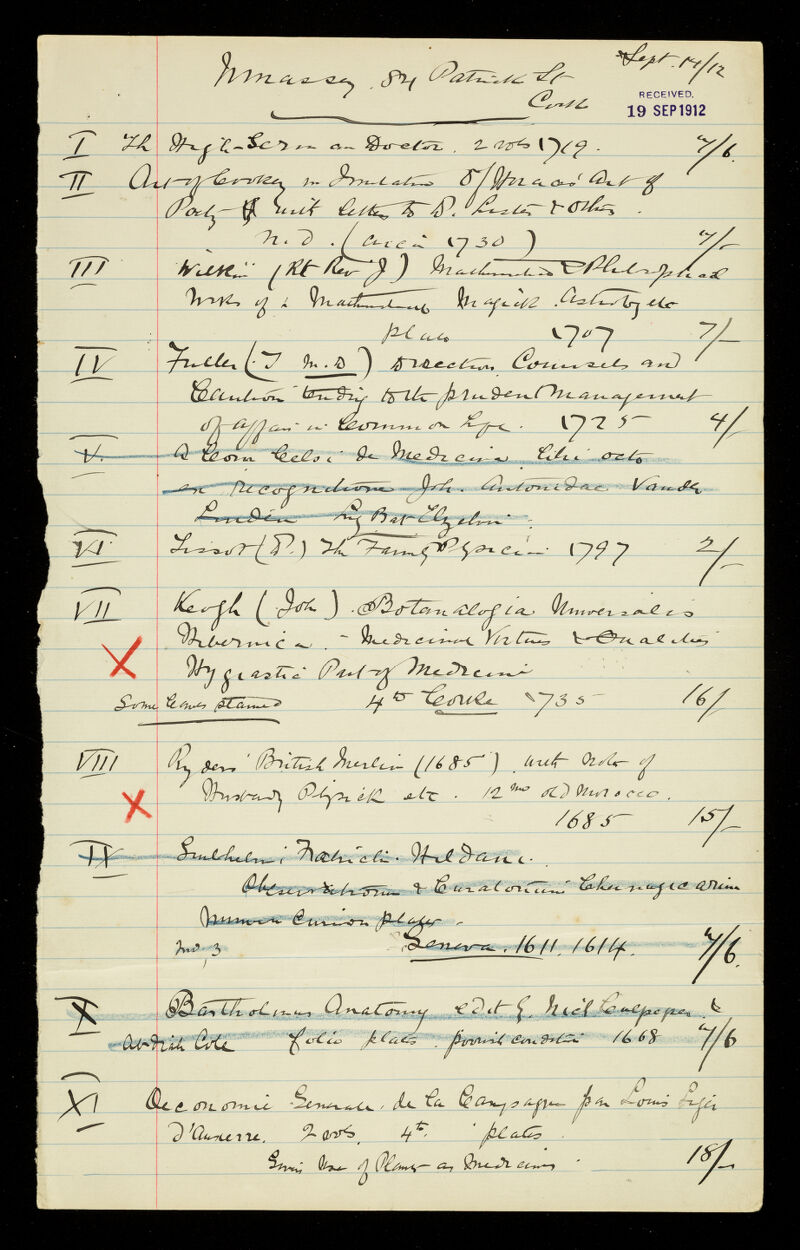 Massey. 84 Patrick St
Cork
Sept. 14/12
RECEIVED.
19 SEP 1912
I The High-German Doctor. 2 vols 1719. 7/6.
II Art of Cookery in Imitation of Horace's Art of
Poetry with letters to Dr. Lister & others.
N.D. (circa 1730) 7/-
III Wilkins (Rt Rev J) Mathematical & Philosophical
Works of Mathematical Magick Astrology etc
plates 1707 7/-
IV Fuller (T M.D) Direction, Counsels and
Cautions tending to the prudent Management
of affairs in Common Life. 1725 4/-
V. A Corn Celsi de Medicina Libri octo
ex recognitione Joh. Antonidae Vander
Linden Lug Bat Elzevir
VI Tissot (D.) The Family Physician 1797 2/-
VII Keogh (John). Botanalogia Universalis
Hibernica. - Medicinal Virtues & Qualities
Hygiastic Part of Medicine
Some leaves stained 4to Corke 1735 16/
VIII Ryders British Merlin (1685) with Notes of
Husbandry Physick etc. 12mo old Morocco.
1685 15/-
IX Gulhelmi Fabricii. Hildani.
Observationum & Curationum Cheirurgicarum
curious plates
3 Geneva. 1611. 1614. 7/6.
X Bartholinus Anatomy edit by Nich Culpeper &
Abdiah Cole folio plates. poorish condition 1668 7/6
XI Oeconomie Generale de la Campagne par Louis Liger
D'Auxerre. 2 vols. 4to. plates
Gives Use of Plants as Medicines. 18/-